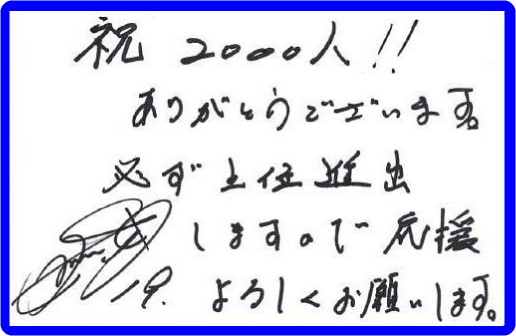 祝 2000人!!
ありがとうございます。
必ず上位進出
しますので応援
19. よろしくお願いします。